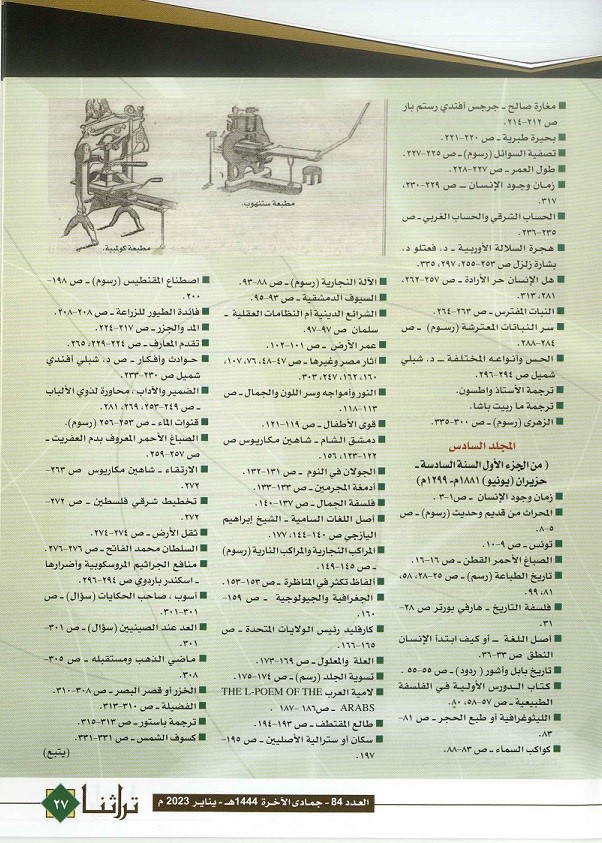 مغارة صالح ـ جرجس أفندي رستم باز
ص ٢١٢-٢١٤.
بحيرة طبرية ـ ص ٢٢٠-٢٢١.
تصفية السوائل (رسوم) ـ ص ٢٢٥-٢٢٧.
طول العمر ـ ص ٢٢٧-٢٢٨.
زمان وجود الإنسان ـ ص ٢٢٩-٢٣٠،
٣١٧.
الحساب الشرقي والحساب الغربي ـ ص
٢٣٥-٢٣٦.
هجرة السلالة الأوربية ـ د. فعتلو د.
بشارة زلزل ص ٢٥٣-٢٥٥، ٢٩٧، ٣٣٥.
هل الإنسان حر الأرادة ـ ص ٢٥٧-٢٦٢،
٢٨١، ٣١٣.
النبات المفترس ـ ص ٢٦٣-٢٦٤.
سر النباتات المعترشة (رسوم) ـ ص
٢٨٤-٢٨٨.
الحس وأنواعه المختلفة ـ د. شبلي
شميل ص ٢٩٤-٢٩٦.
ترجمة الأستاذ واطسون.
ترجمة ماربيت باشا.
الزهرى (رسوم) ـ ص ٣٠٠-٣٣٥.
المجلد السادس
( من الجزء الأول السنة السادسة ـ
حزيران (يونيو) ١٨٨١م-١٢٩٩م)
زمان وجود الإنسان ـ ص١-٣.
المحراث من قديم وحديث (رسوم) ـ ص
٥-٨.
تونس ـ ص ٩-١٠.
الصباغ الأحمر القطن ـ ص ١٦-١٦.
تاريخ الطباعة (رسم) ـ ص ٢٥-٢٨، ٥٨،
٨١، ٩٩.
فلسفة التاريخ ـ هارفي بورتر ص ٢٨-
٣١.
أصل اللغة ـ أو كيف ابتدأ الإنسان
النطق ص ٣٣-٣٦.
تاريخ بابل وأشور ( ردود) ـ ص ٥٥-٥٥.
كتاب الدورس الأولية في الفلسفة
الطبيعية ـ ص ٥٧-٥٨، ٨٠.
الليثوغرافية أو طبع الحجر ـ ص ٨١-
٨٣.
كواكب السماء ـ ص ٨٣-٨٨.
مطبعة ستنهوب.
مطبعة كولمبية.
الآلة النجارية (رسوم) ـ ص ٨٨-٩٣.
السيوف الدمشقية ـ ص ٩٣-٩٥.
الشرائع الدينية أم النظامات العقلية ـ
سلمان ص ٩٧-٩٧.
عمر الأرض ـ ص ١٠١-١٠٢.
آثار مصر وغيرها ـ ص ٤٧-٤٨، ٧٦، ١٠٧،
١٦٠، ١٦٢، ٢٤٧، ٣٠٣.
النور وأمواجه وسر اللون والجمال ـ ص
١١٣-١١٨.
قوى الأطفال ـ ص ١١٩-١٢١.
دمشق الشام ـ شاهين مكاريوس ص
١٢٢-١٢٣، ١٥٦.
الجولان في النوم ـ ص ١٣١-١٣٢.
أدمغة المجرمين ـ ص ١٣٣-١٣٣.
فلسفة الجمال ـ ص ١٣٧-١٤٠.
أصل اللغات السامية ـ الشيخ إبراهيم
اليازجي ص ١٤٠-١٤٤، ١٧٧.
المراكب النجارية والمراكب النارية (رسوم)
ـ ص ١٤٥-١٤٩.
ألفاظ تكثر في المناظرة ـ ص ١٥٣-١٥٣.
الجغرافية والجيولوجية ـ ص ١٥٩-
١٦٠.
كارفليد رئيس الولايات المتحدة ـ ص
١٦٥-١٦٦.
العلة والمعلول ـ ص ١٦٩-١٧٣.
تسوية الجلد (رسم) ـ ص ١٧٤-١٧٥.
لامية العرب THE L-POEM OF THE
ARABS ـ ص١٨٦-١٨٧ .
طالع المقتطف ـ ص ١٩٣-١٩٤.
سكان أو سترالية الأصليين ـ ص ١٩٥-
١٩٧.
اصطناع المقنطيس (رسوم) ـ ص ١٩٨-
٢٠٠.
فائدة الطيور للزراعة ـ ص ٢٠٨-٢٠٨.
المد والجزر ـ ص ٢١٧-٢٢٤.
تقدم المعارف ـ ص ٢٢٤-٢٢٩، ٢٦٥.
حوادث وأفكار ـ ص د. شبلي أفندي
شميل ص ٢٣٠-٢٣٣.
الضمير والآداب ، محاورة لذوي الألباب
ـ ص ٢٤٩-٢٥٣، ٢٦٩، ٢٨١.
قنوات الماء ـ ص ٢٥٣-٢٥٦ (رسوم).
الصباغ الأحمر المعروف بدم العفريت ـ
ص ٢٥٧-٢٥٩.
الارتقاء ـ شاهين مكاريوس ص ٢٦٣-
٢٧٢.
تخطيط شرقي فلسطين ـ ص ٢٧٢-
٢٧٢.
ثقل الأرض ـ ص ٢٧٤-٢٧٤.
السلطان محمد الفاتح ـ ص ٢٧٦-٢٧٦.
منافع الجراثيم المروسكوبية وأضرارها
ـ اسكندر باردوي ص ٢٩٤-٢٩٦.
أسوب ، صاحب الحكايات (سؤال) ـ ص
٣٠١-٣٠١.
العد عند الصينيين (سؤال) ـ ص ٣٠١-
٣٠١.
ماضي الذهب ومستقبله ـ ص ٣٠٥-
٣٠٨.
الخزر أو قصر البصر ـ ص ٣٠٨-٣١٠.
الفضيلة ـ ص ٣١٠-٣١٣.
ترجمة باستور ـ ص ٣١٣-٣١٥.
كسوف الشمس ـ ص ٣٣١-٣٣١.
(يتبع)
العدد 84 - جمادى الآخرة 1444هـ - يناير 2023 م
تراثنا
٢٧